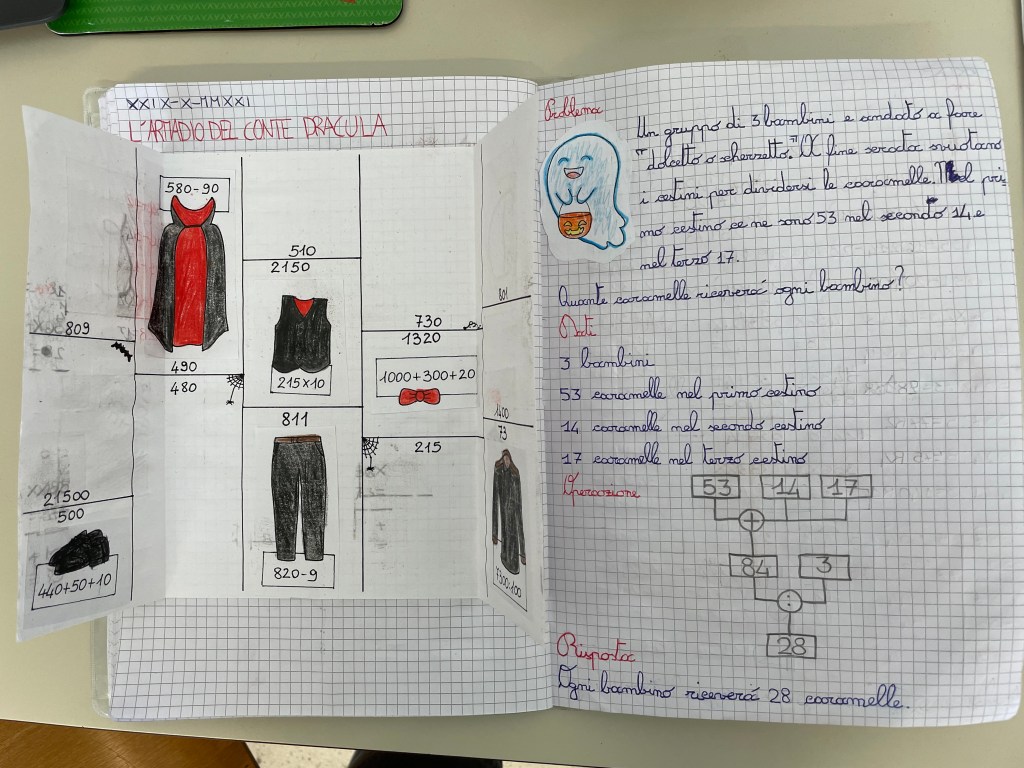 XXIX-X-MMXXI
L'ARMADIO DEL CONTE DRACULA
809
21500
500
440+50+10
580-90
490
480
510
2150
215×10
811
820-9
730
1320
1000+300+20
215
801
1400
73
7300:100
Problema
Un gruppo di 3 bambini e andato a fare
"dolcetto o scherzetto." A fine serata svuotano
i cestini per dividersi le caramelle. Nel pri-
mo cestino ce ne sono 53 nel secondo 14 e
nel terzo 17.
Quante caramelle riceverá ogni bambino?
Dati
3 bambini
53 caramelle nel primo cestino
14 caramelle nel secondo cestino
17 caramelle nel terzo cestino
Operazione
53 14 17
+
84 3
:
28
Risposta
Ogni bambino riceverá 28 caramelle.